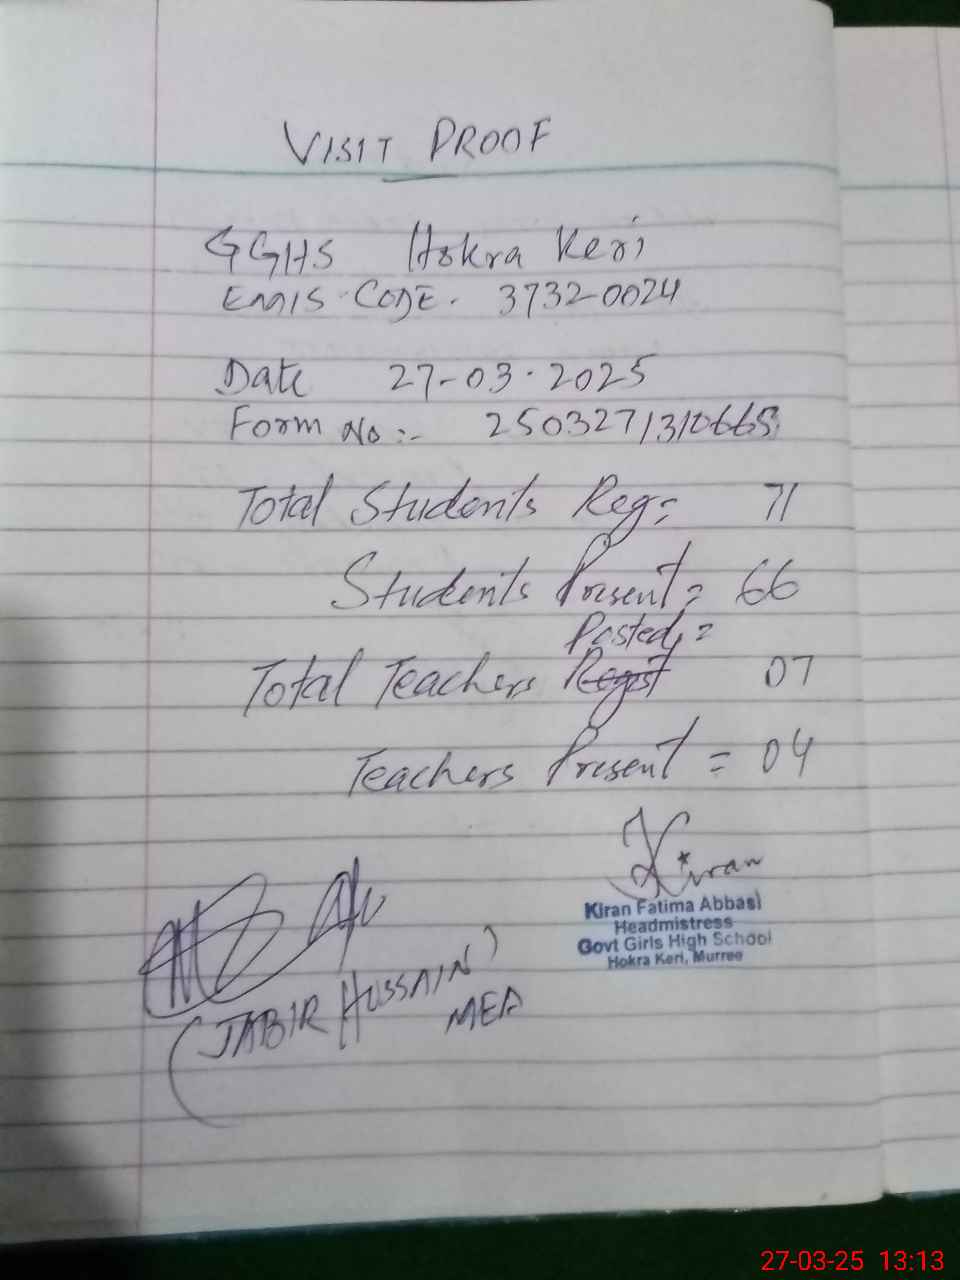 VISIT PROOF
GGHS Hokra Keri
EMIS CODE. 37320024
Date 27-03-2025
Form No :- 250327131066
Total Students Reg= 71
Students Present = 66
Posted =
Total Teachers Regist 07
Teachers Present = 04
Kiran
Kiran Fatima Abbasi
Headmistress
Govt Girls High School
Hokra Keri, Murree
(JABIR HUSSAIN)
MEA
27-03-25 13:13